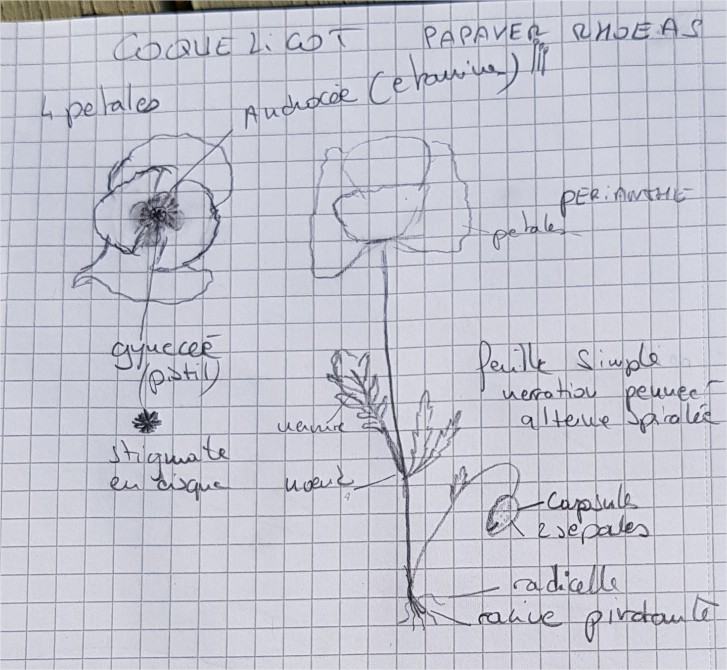 COQUELICOT PAPAVER RHOEAS
4 petales
Androcée (etamine)
PERIANTHE
petales
gyneceé
(pistil)
stigmate
en disque
feuille simple
nervation penneé
alterne spiralée
nervure
noeud
capsule
2 sepales
radicelle
racine pivotante